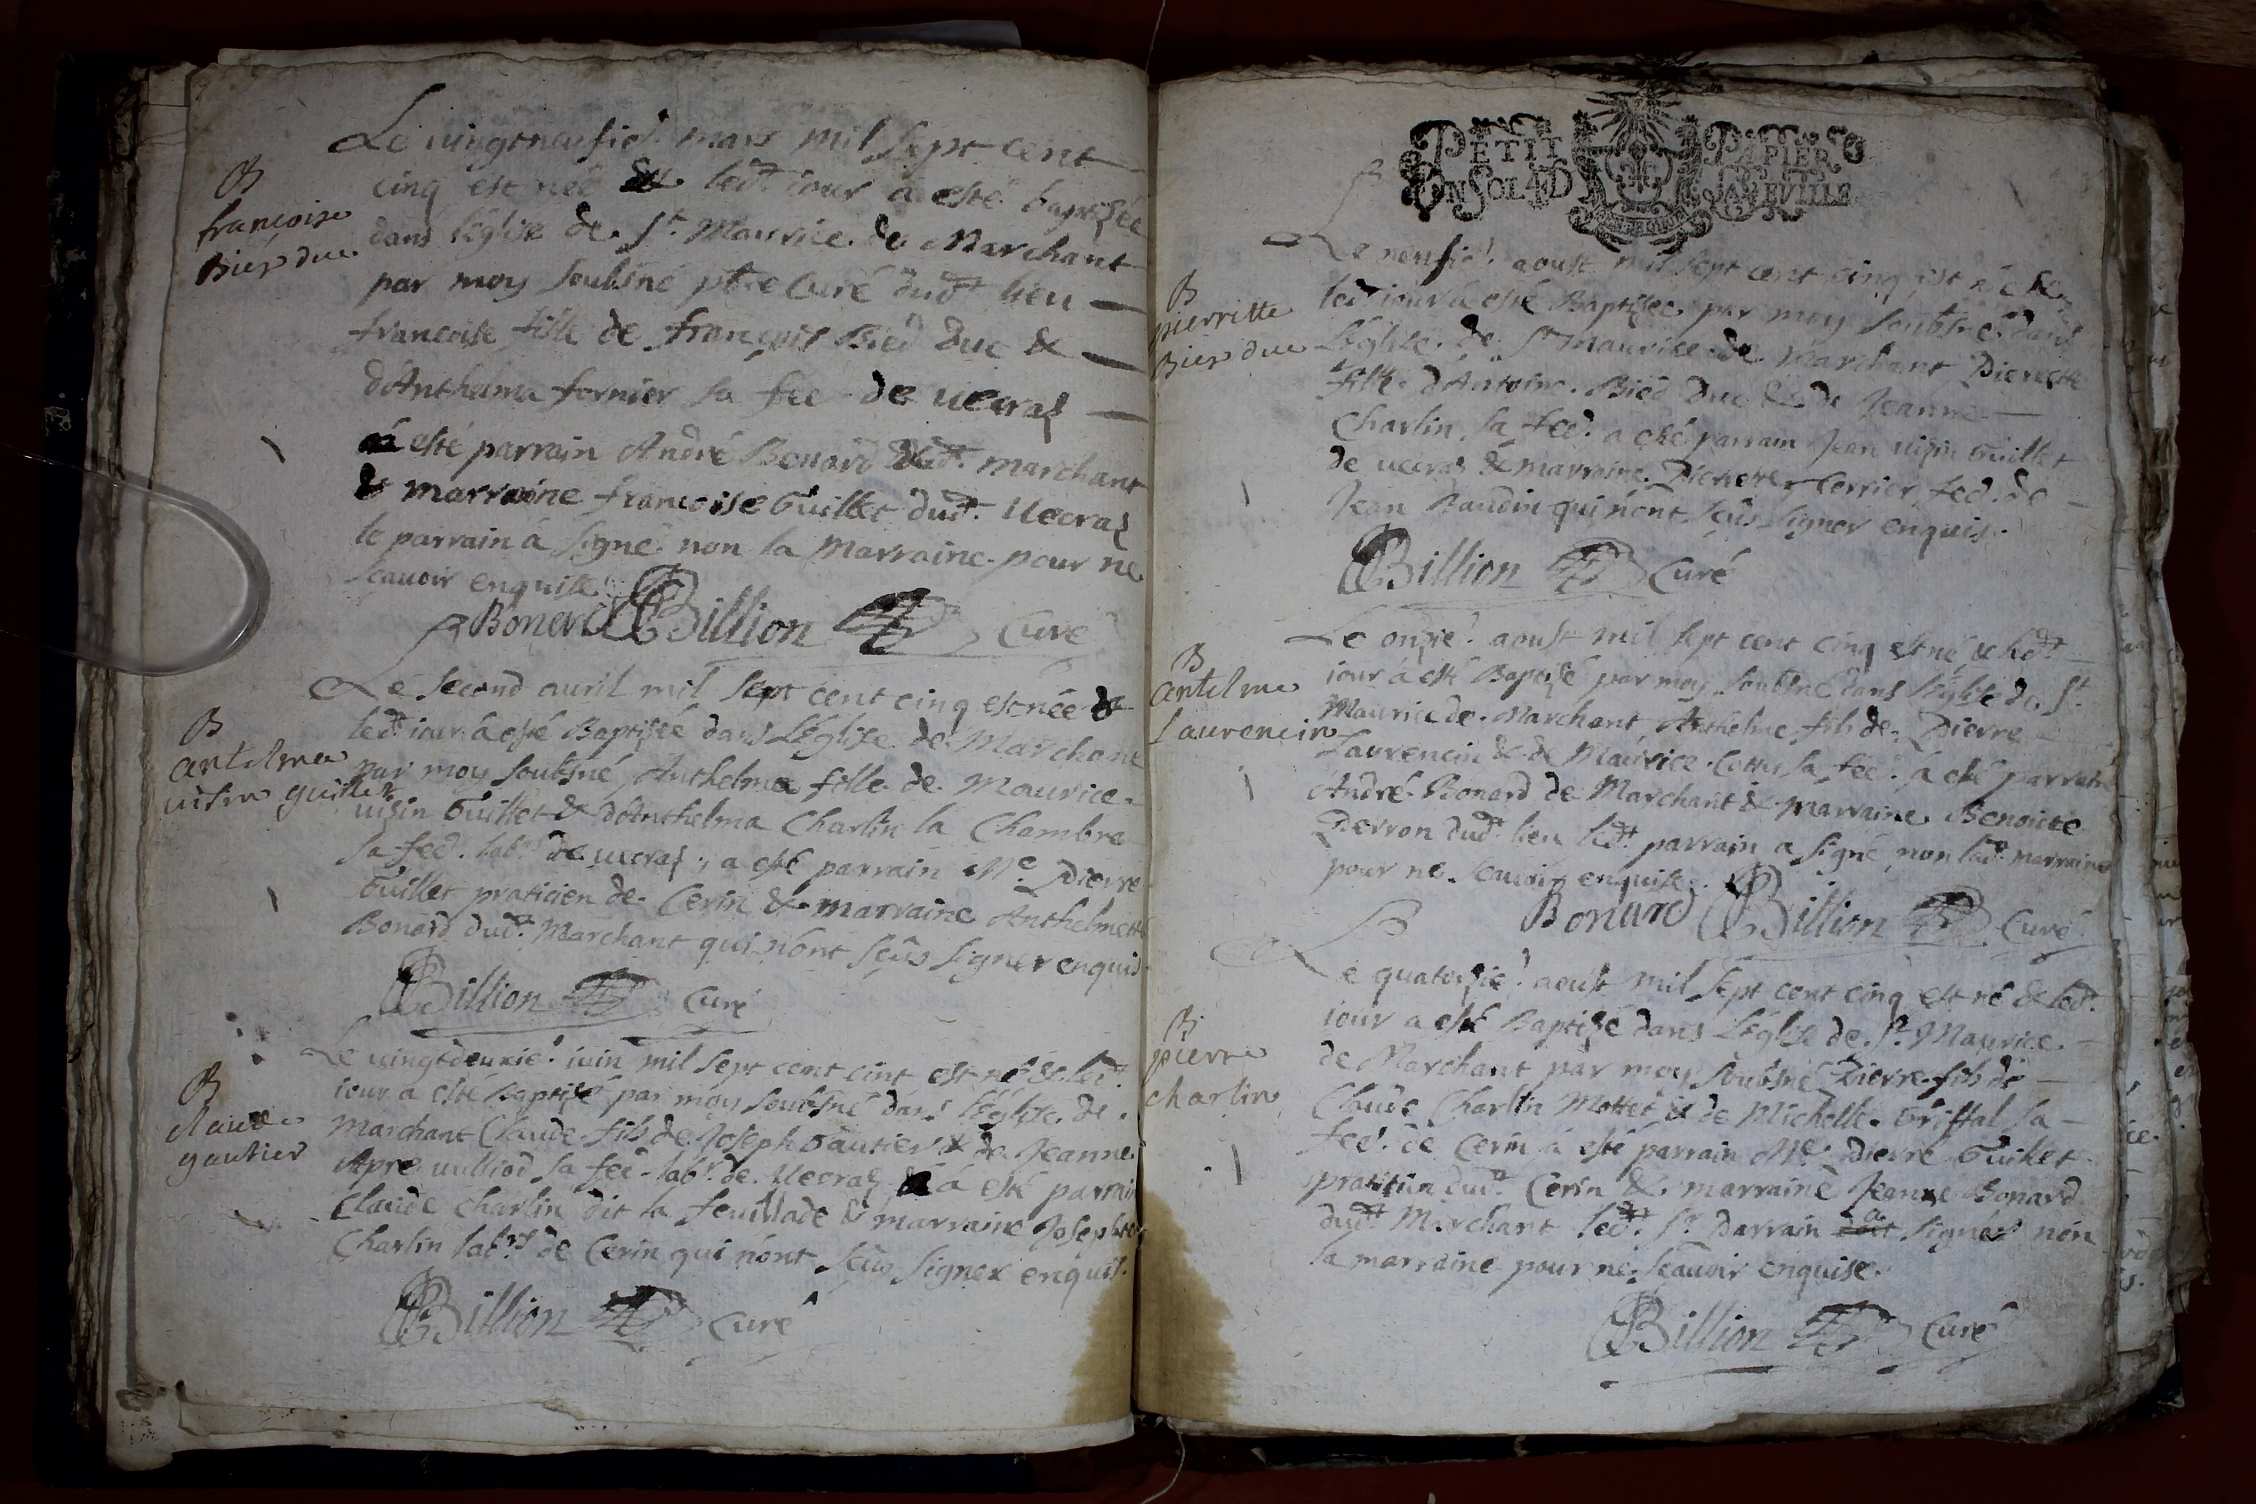 Le vingtneufie. mars mil sept cent
cinq est née & led.t iour a esté baptisée
dans l'église de S.t Maurice de Marchant
par moy soubsné ptre curé dud.t lieu
francoise fille de françois Bied duc &
d'Anthelma fornier sa fee de vecras
a esté parrain André Bonard dud.t marchant
& marraine francoise Guillet dud.t Vecras
le parrain á signé non la Marraine pour ne
scauoir enquise
Bonard Billion Curé
B
francoise
Bied duc
Le second auril mil sept cent cinq est née &
led.t iour a esté Baptisée dans L'Eglise de Marchant
par moy soubsné Anthelma fille de Maurice
uisin Guillet & d'Anthelma Charlin la Chambre
sa fee. lab.rs de vecras, a esté parrain M.e Pierre
Guillet praticien de Cerin & marraine Anthelmette
Bonard dud.t Marchant qui n'ont sçûs signer enquis
Billion Curé
B
antelma
uisin guillet
Le vingtdeuxie. iuin mil sept cent cint est né & led.t
iour a esté Baptisé par moy soubsné dans l'église de
Marchant Claude fils de Joseph Gautier & de Jeanne
Apre uulliod sa fee lab.r de Vecras á esté parrain
Claude Charlin dit la feuillade & marraine Josephte
Charlin lab.rs de Cerin qui n'ont sçûs signer enquis.
Billion Curé
B
claude
gautier
PETIT PAPIER
UN SOL 4 D LA FEVILLE
Le neufie. aoust mil sept cent cinq est née &
led.t iour a esté Baptisée par moy soubsné dans
L'église de S.t Maurice de Marchant Pierrette
fille d'Antoine Bied Duc & de Jeanne
Charlin sa fee. a esté parrain Jean uisin Guillet
de vecras & marraine Pierrette Cerrier fee. de
Jean Baudin qui n'ont sçûs signer enquis.
Billion Curé
B
pierrette
Bied duc
Le onzie. aoust mil sept cent cinq est né & led.t
iour á esté Baptisé par moy soubsné dans l'église de S.t
Maurice de Marchant Anthelme fils de Pierre
Laurencin & de Maurice sa fee. á esté parrain
André Bonard de Marchant & marraine Benoite
Perron dud.t lieu led.t parrain a signé non lad. marraine
pour ne scauoir enquise.
Bonard Billion Curé
B
antelme
Laurencin
Le quatorzie. aoust mil sept cent cinq est né & led.t
iour a esté Baptizé dans L'église de S.t Maurice
de Marchant par moy soubsné Pierre fils de
Claude Charlin Mottet & de Michelle Griffal sa
fee. de Cerin á esté parrain M.e Pierre Guillet
pratitien dud.t Cerin & marraine Jeanne Bonard
dud.t Marchant led.t S.r Parrain a signé non
la marraine pour ne scauoir enquise.
Billion Curé
B
pierre
charlin